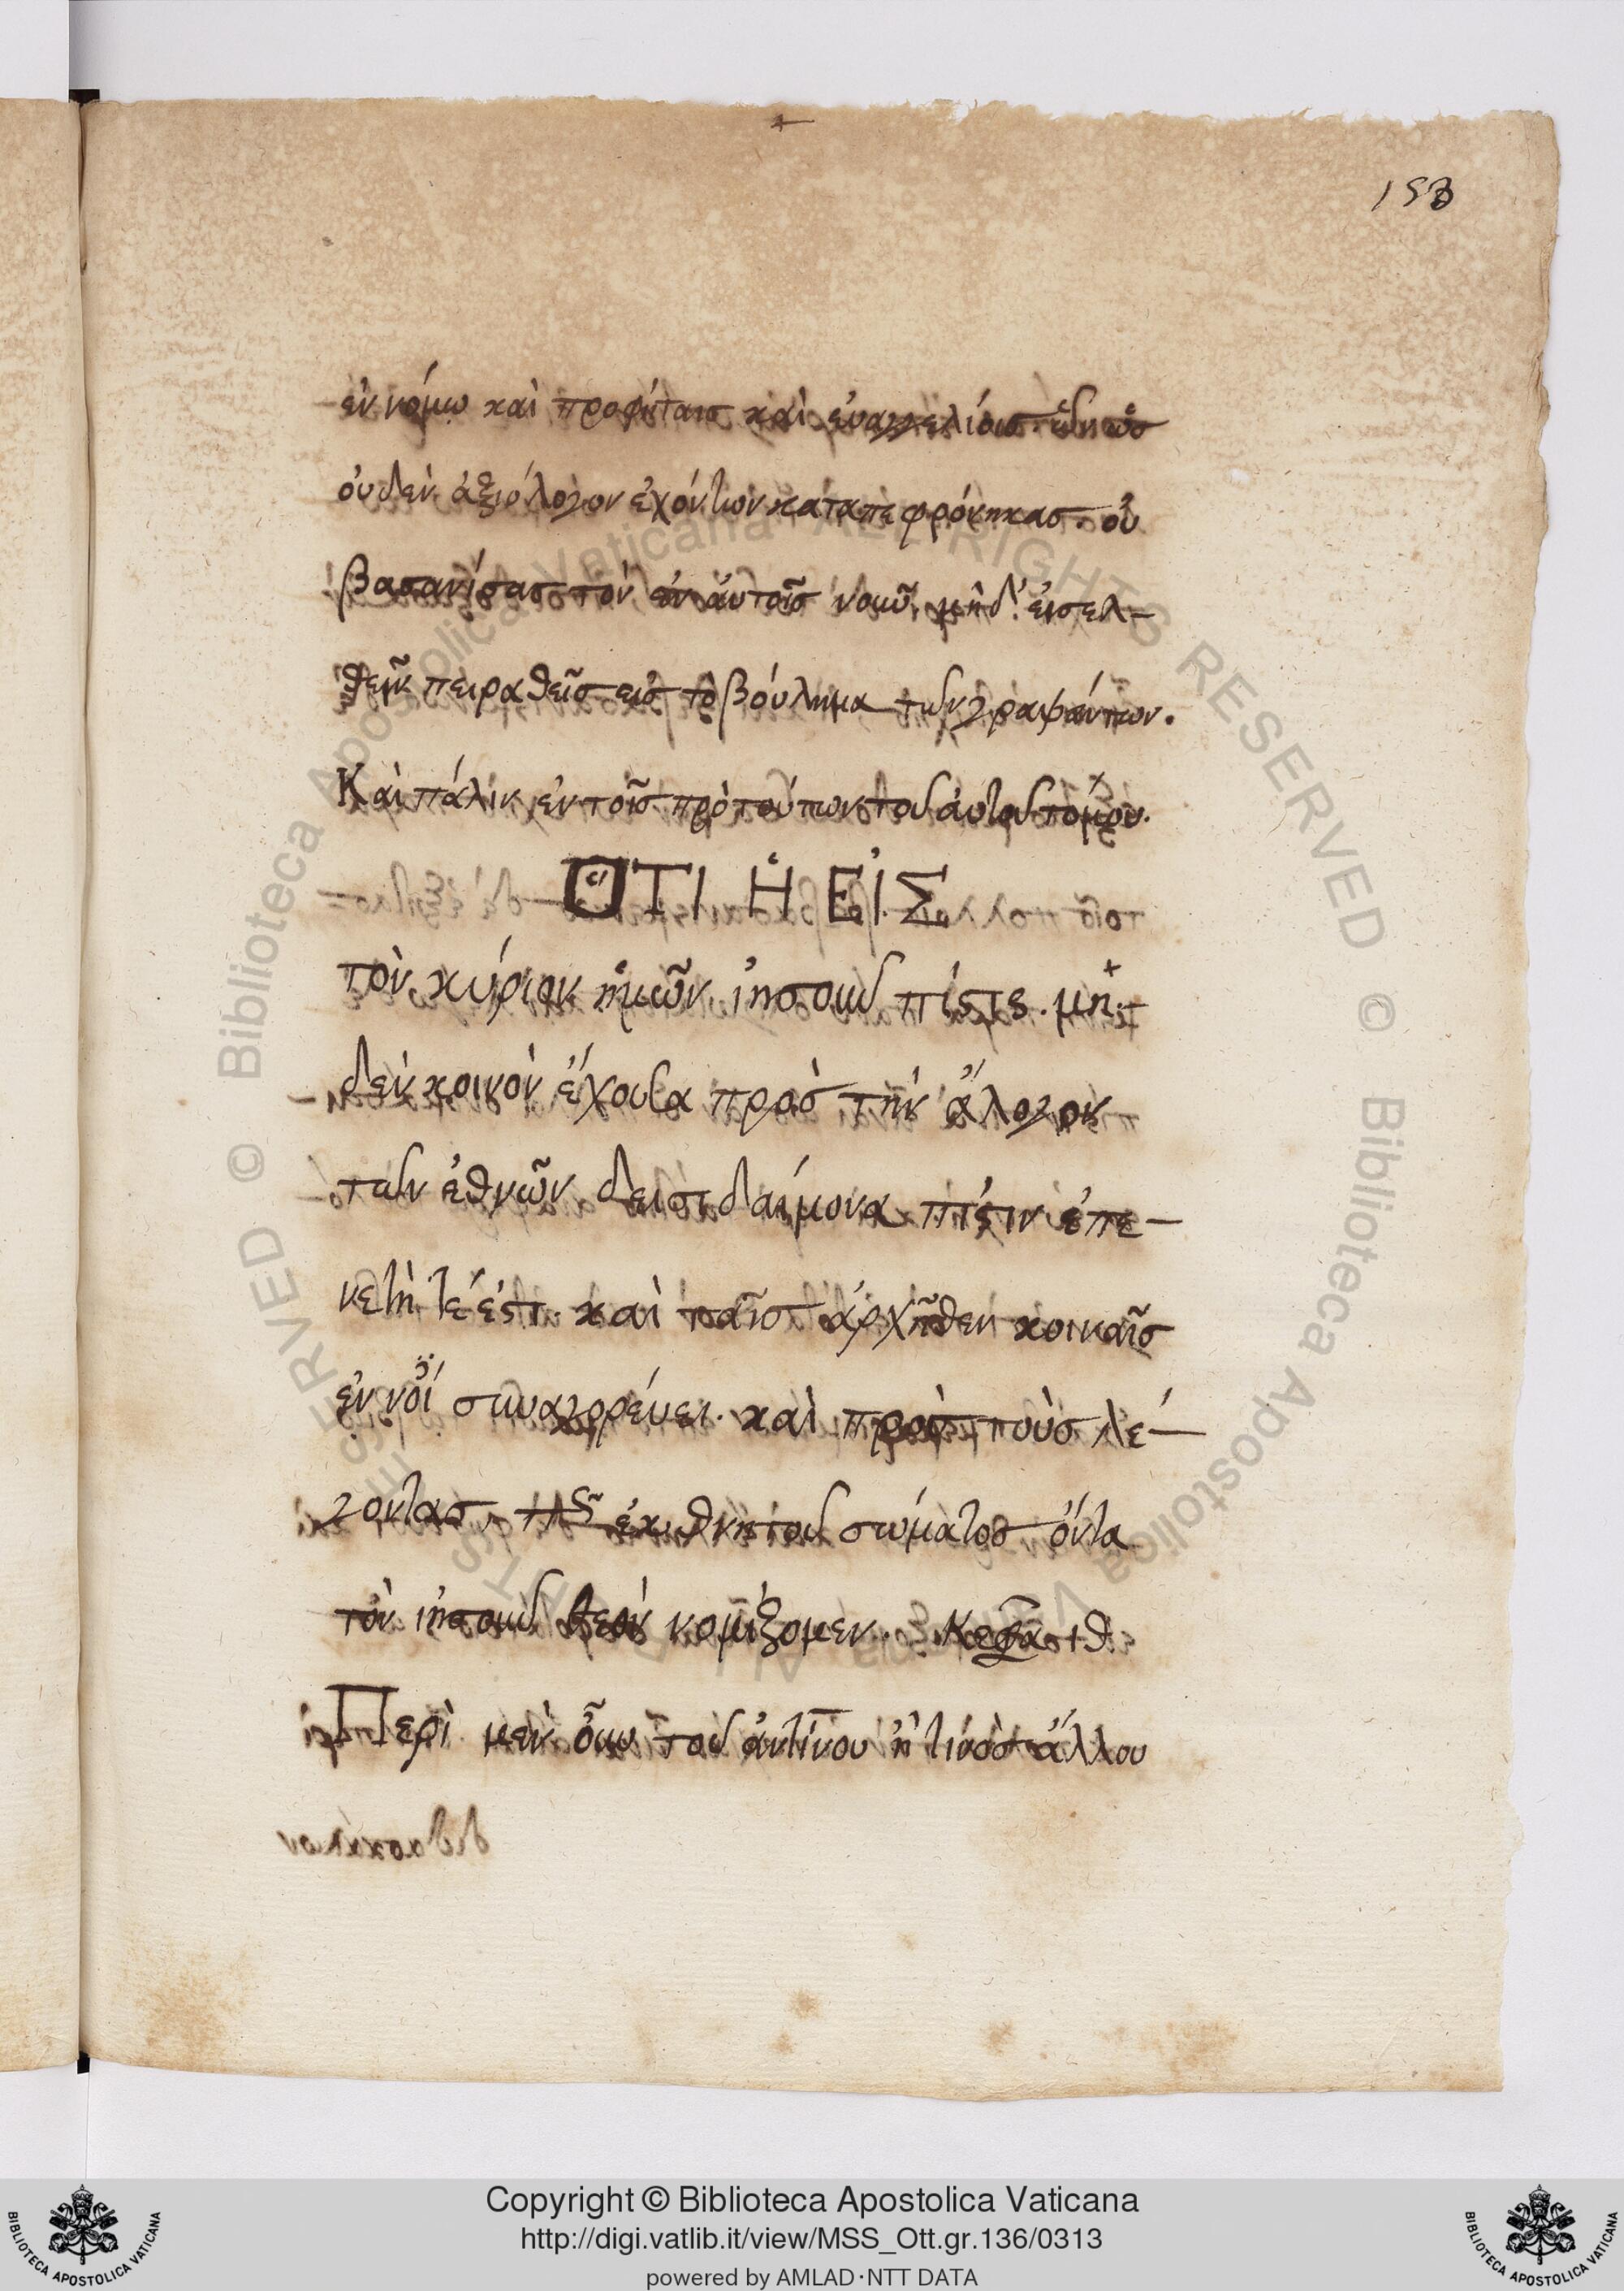 153
ἐν νόμω καὶ προφήταισ καὶ ἐυαγγελίοισ.
ὀυδὲν ἀξιόλογον ἐχόντων καταπεφρόνηκασ. ὀυ
βασανίσασ τὸν ἐν ἀυτοῖσ νοῦν. μὴδ' ἐισελ-
θεῖν πειραθεῖσ εισ τὸ βόυλημα των γραψάντων.
Καὶ πάλιν ἐν τοῖσ πρὸ τούτων του ἀυτου τόμου.
ὍΤΙ Ἡ ΕἸΣ
τὸν κύριον ἡμῶν ἰησουν πίστις. μη-
δὲν κοινὸν ἔχουσα πρὸσ τὴν ἄλογον
των ἐθνῶν δεισιδαίμονα πίστιν ἐπε-
νετή τέ ἐστι. καὶ ταῖσ ἀρχῆθεν κοιναῖσ
ἐννοί συναγορέυει. καὶ πρὸσ τοὺσ λέ-
γοντασ, πῶς ἐκ θνητου σώματοσ ὄντα
τὸν ἰησουν θεὸν νομίζομεν. Κεφα ιθ.
Περὶ μεν ὀυν του ἀντίνου ἤ τινὸσ ἄλλου
Copyright © Biblioteca Apostolica Vaticana
http://digi.vatlib.it/view/MSS_Ott.gr.136/0313
powered by AMLAD·NTT DATA
BIBLIOTECA APOSTOLICA VATICANA
BIBLIOTECA APOSTOLICA VATICANA